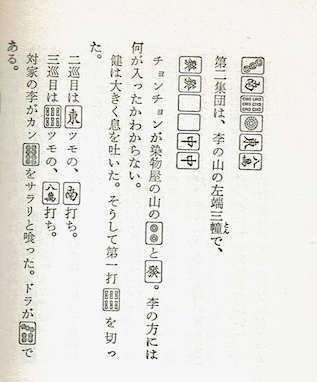 南東八萬
第二集団は、李の山の左端三幢で、
とん
發發中中
チョンチョンが染物屋の山のと發。李の方には
何が入ったかわからない。
健は大きく息を吐いた。そうして第一打を切っ
た。
二巡目は東ツモの、南打ち。
三巡目はツモの、八萬打ち。
対家の李がカンをサラリと喰った。ドラがで
ある。